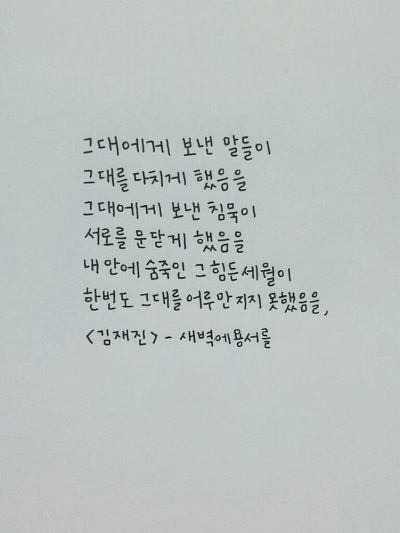 그대에게 보낸 말들이
그대를 다치게 했음을
그대에게 보낸 침묵이
서로를 문닫게 했음을
내 안에 숨죽인 그 힘든 세월이
한번도 그대를 어루만지지 못했음을,
<김재진> - 새벽에용서를